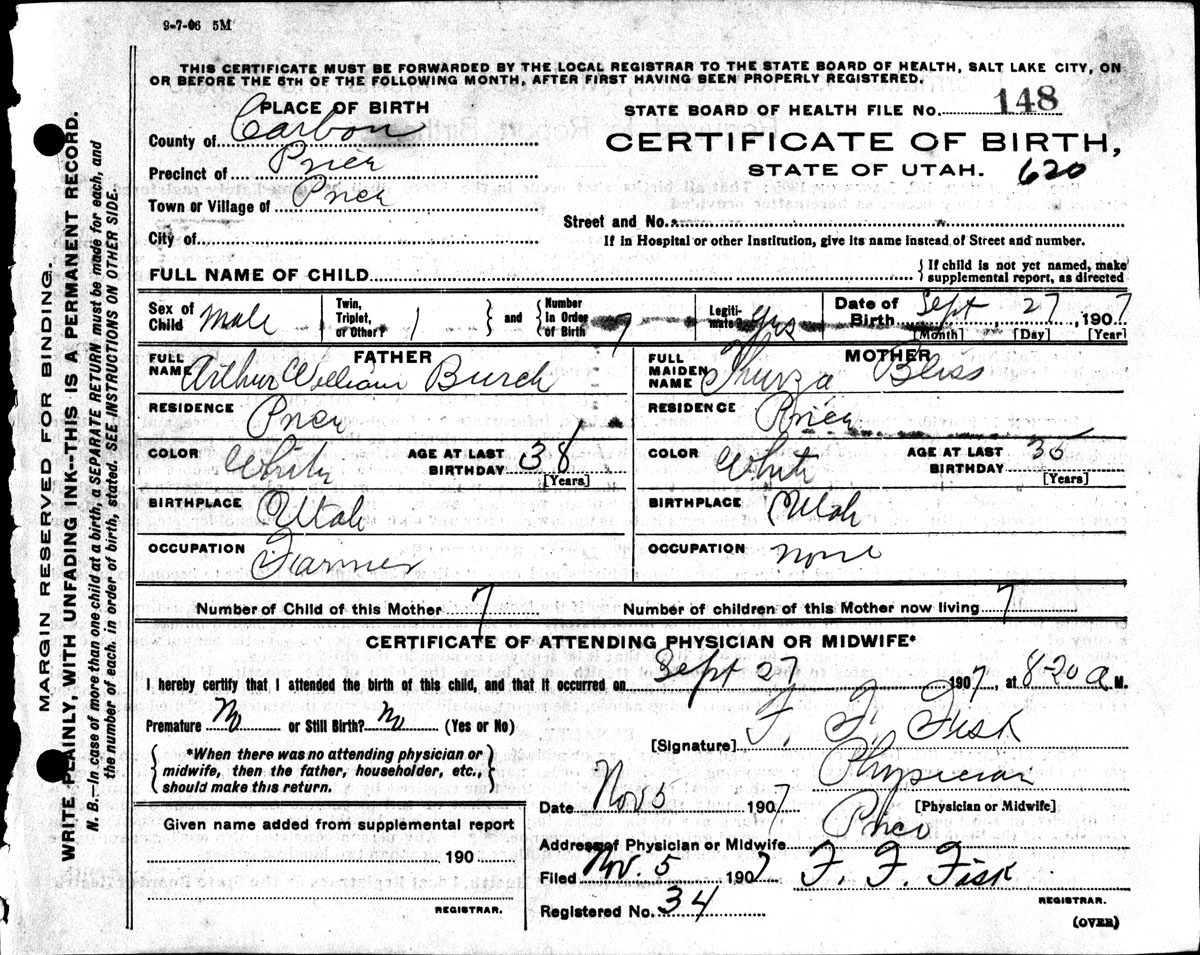 9-7-06 5M
THIS CERTIFICATE MUST BE FORWARDED BY THE LOCAL REGISTRAR TO THE STATE BOARD OF HEALTH, SALT LAKE CITY, ON
OR BEFORE THE 5TH OF THE FOLLOWING MONTH, AFTER FIRST HAVING BEEN PROPERLY REGISTERED.
PLACE OF BIRTH
STATE BOARD OF HEALTH FILE No. 148
County of Carbon
CERTIFICATE OF BIRTH,
Precinct of Price
STATE OF UTAH. 620
Town or Village of Price
Street and No.
City of
If in Hospital or other Institution, give its name instead of Street and number.
FULL NAME OF CHILD
{ If child is not yet named, make
supplemental report, as directed
Sex of Child Male
Twin, Triplet, or Other? 1 } and { Number in Order of Birth 7
Legitimate? Yes
Date of Birth Sept 27, 1907
[Month] [Day] [Year]
FATHER
FULL NAME Arthur William Burch
MOTHER
FULL MAIDEN NAME Thurza Bliss
RESIDENCE Price
RESIDENCE Price
COLOR White AGE AT LAST BIRTHDAY 38 [Years]
COLOR White AGE AT LAST BIRTHDAY 35 [Years]
BIRTHPLACE Utah
BIRTHPLACE Utah
OCCUPATION Farmer
OCCUPATION none
Number of Child of this Mother 7 Number of children of this Mother now living 7
CERTIFICATE OF ATTENDING PHYSICIAN OR MIDWIFE*
I hereby certify that I attended the birth of this child, and that it occurred on Sept 27 1907, at 8-20 a M.
Premature No or Still Birth? No (Yes or No)
[Signature] F. F. Fisk
{ *When there was no attending physician or
midwife, then the father, householder, etc.,
should make this return. }
Physician
Date Nov 5 1907 [Physician or Midwife]
Given name added from supplemental report
Address of Physician or Midwife Price
190
Filed Nov. 5 1907 F. F. Fisk
REGISTRAR.
REGISTRAR.
Registered No. 34
(OVER)
MARGIN RESERVED FOR BINDING.
WRITE PLAINLY, WITH UNFADING INK--THIS IS A PERMANENT RECORD.
N. B.—In case of more than one child at a birth, a SEPARATE RETURN must be made for each, and
the number of each, in order of birth, stated. SEE INSTRUCTIONS ON OTHER SIDE.